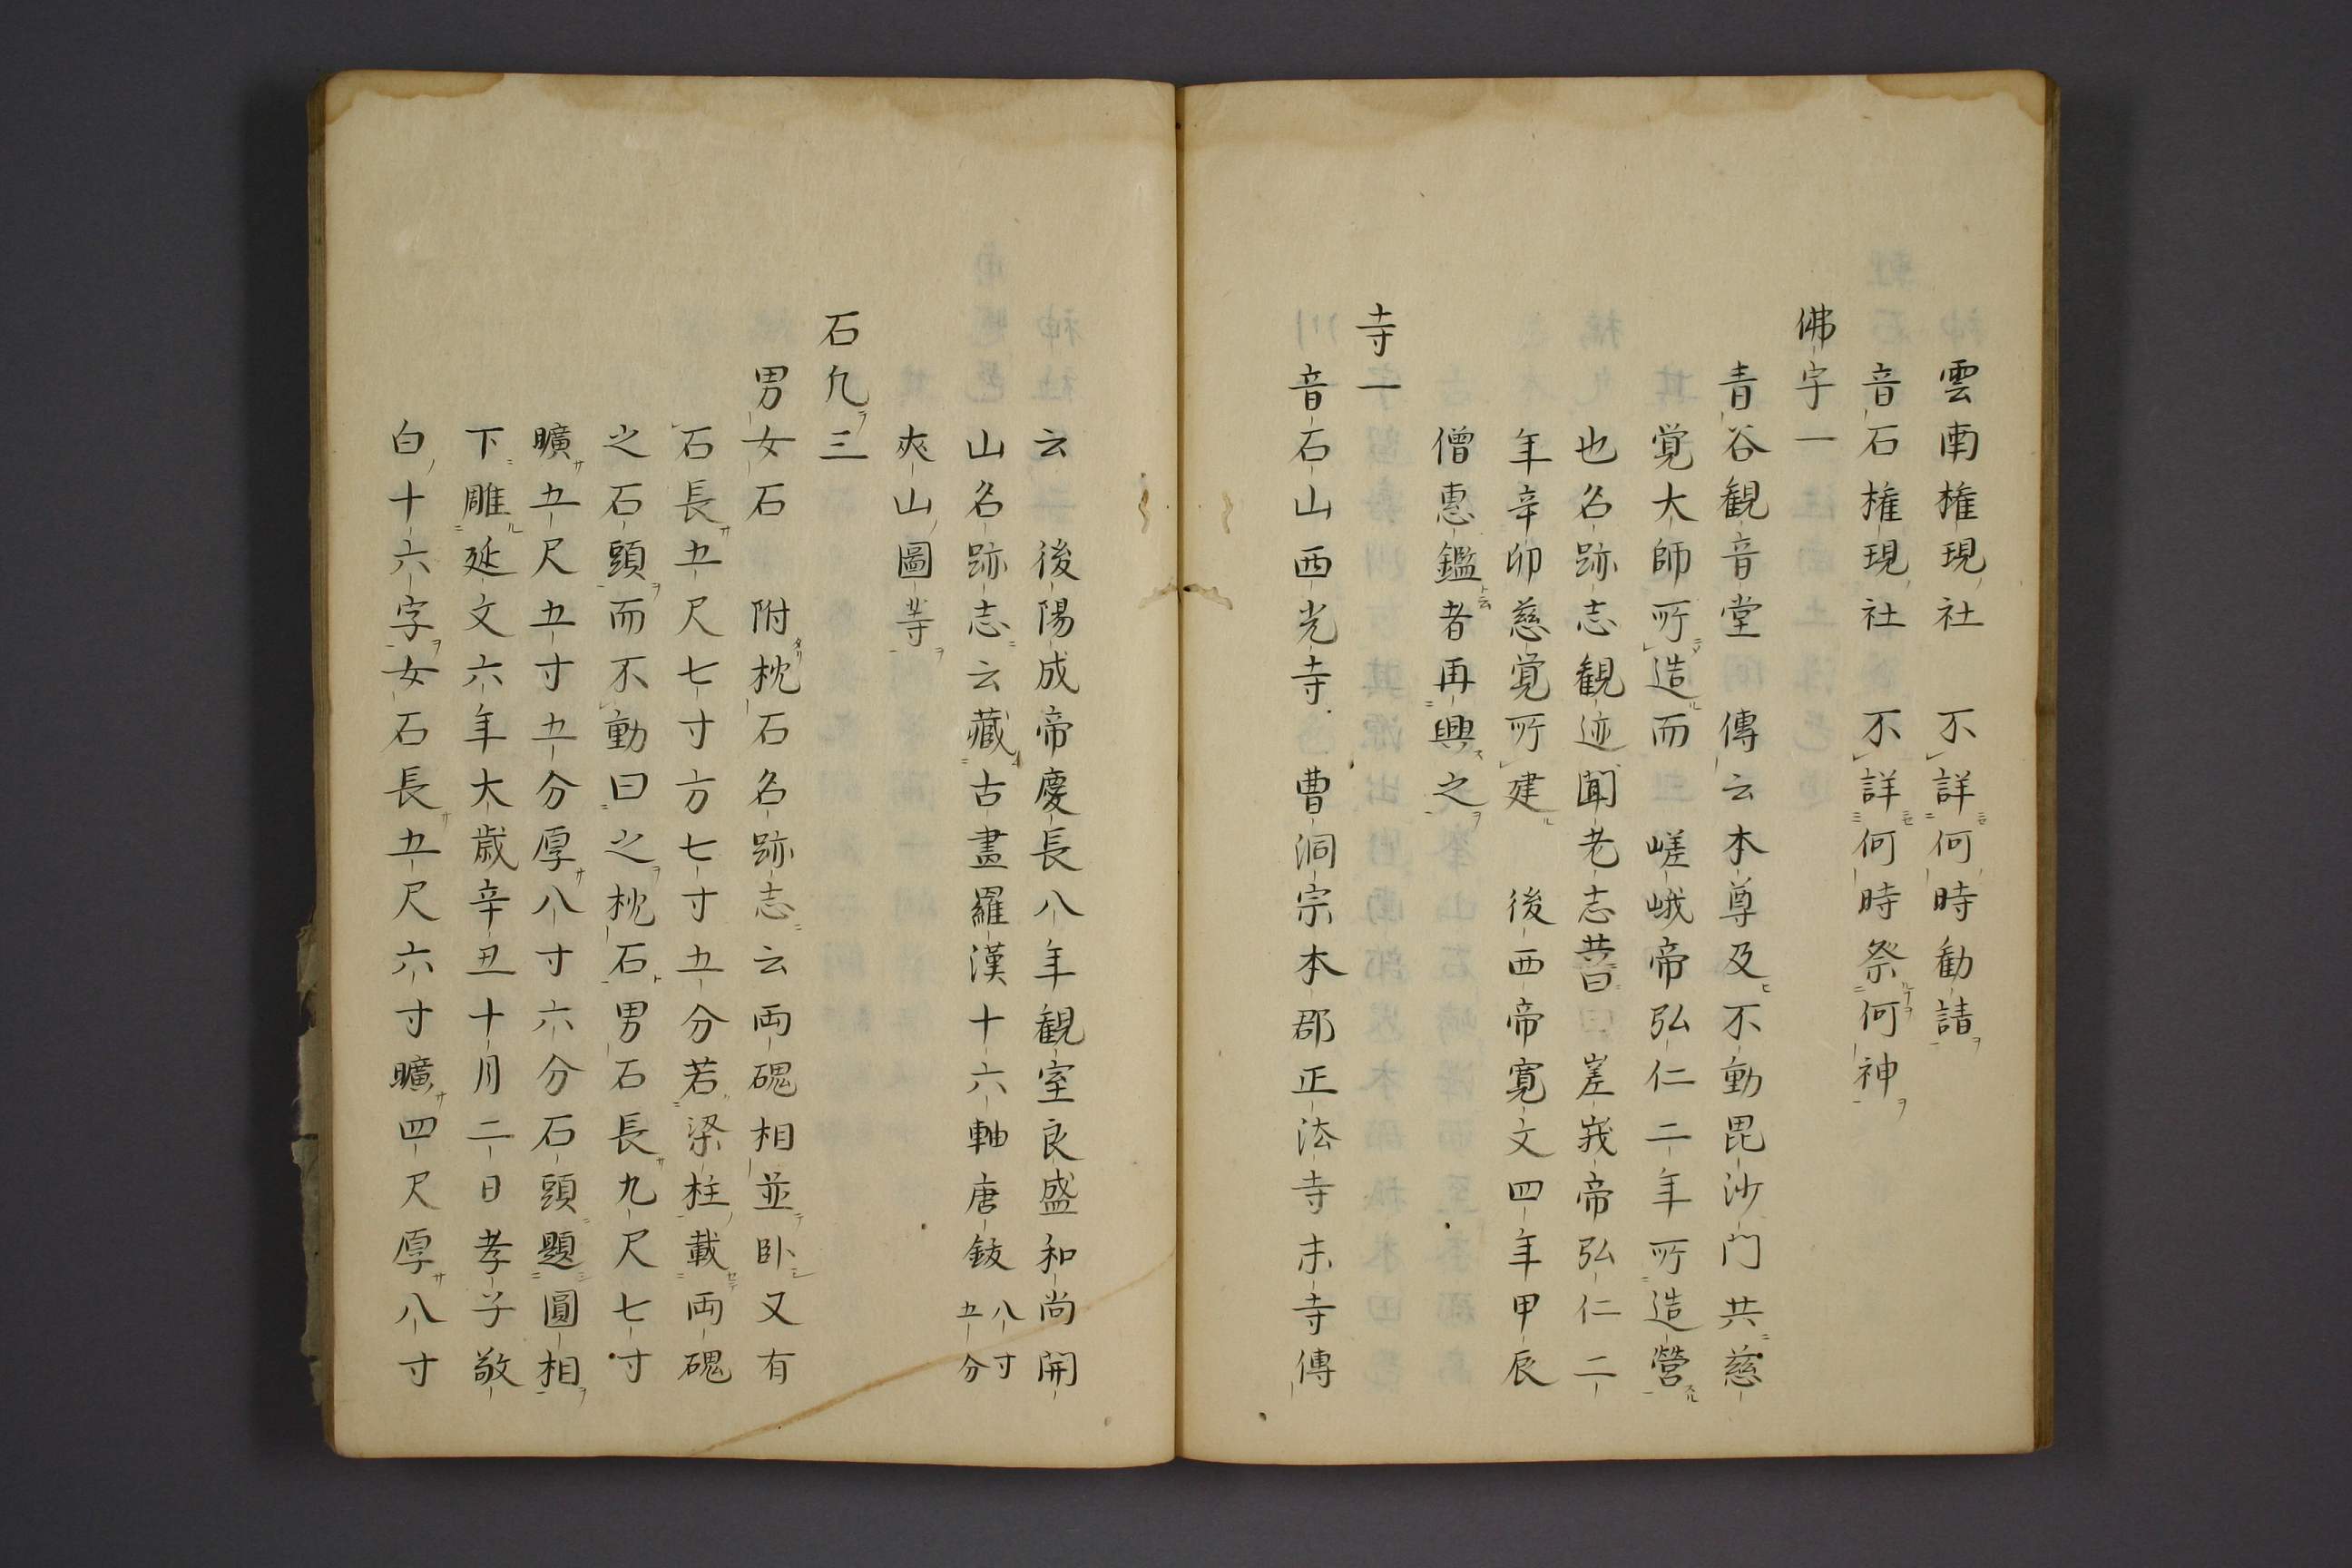 雲南権現社　不詳何時勧請
音石権現社　不詳何時祭何神
佛宇一
青谷観音堂　傳云本尊及不動毘沙門共慈
覚大師所造而　嵯峨帝弘仁二年所造營
也名跡志観迹聞老志昔　嵳峩帝弘仁二
年辛卯慈覚所建　後西帝寛文四年甲辰
僧惠鑑者再興之
寺一
音石山西光寺　曹洞宗本郡正法寺末寺傳
云　後陽成帝慶長八年観室良盛和尚開
山名跡志云藏古畫羅漢十六軸唐鈸八寸五分
夾山圖等
石九三
男女石　附枕石名跡志云両磈相並卧又有
石長五尺七寸方七寸五分若梁柱載両磈
之石頭而不動曰之枕石男石長九尺七寸
曠五尺五寸五分厚八寸六分石頭題圓相
下雕延文六年大歳辛丑十月二日孝子敬
白十六字女石長五尺六寸曠四尺厚八寸